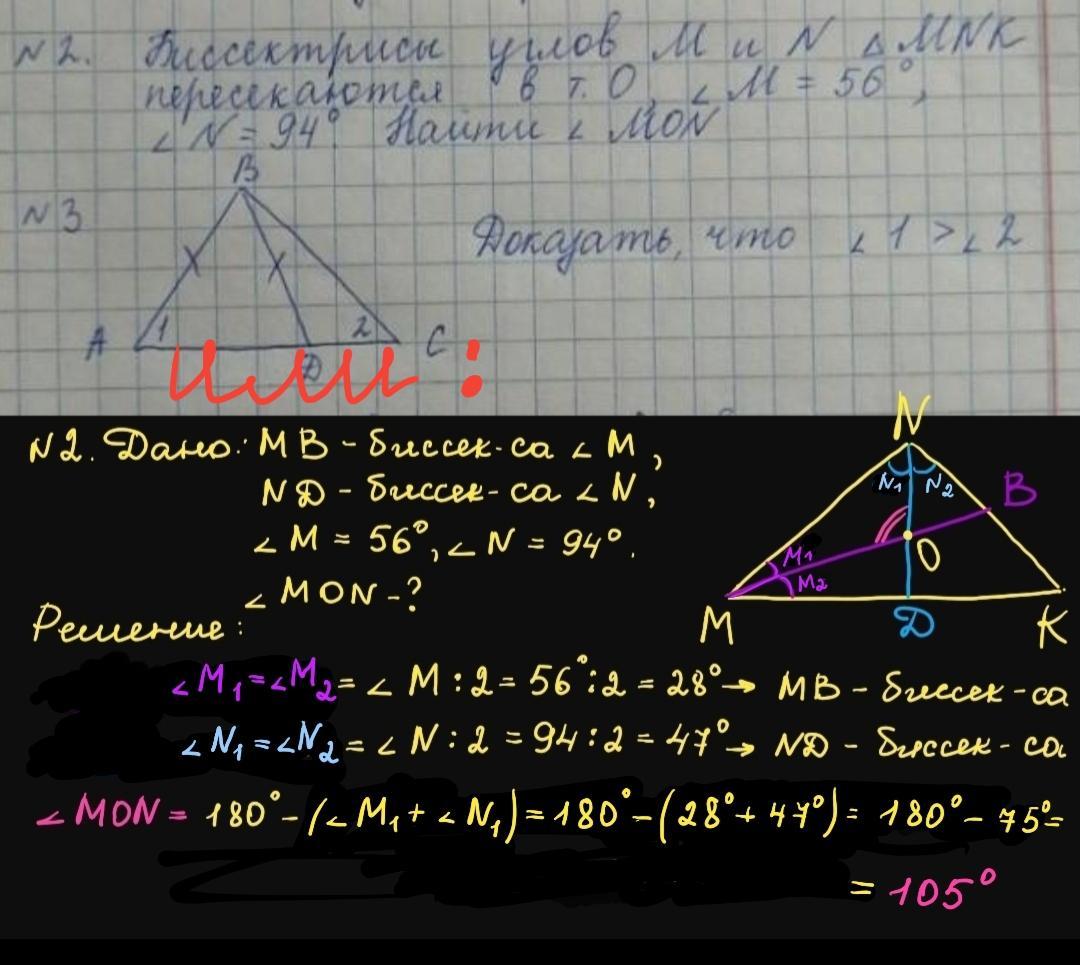 N2. Биссектрисы углов M и N △ MNK
пересекаются в т. O, ∠ M = 56°,
∠ N = 94°. Найти ∠ MON
N3
B
Доказать, что ∠ 1 > ∠ 2
1 2
A D C
или:
N2. Дано: MB - биссек-са ∠ M,
ND - биссек-са ∠ N,
∠ M = 56°, ∠ N = 94°.
∠ MON - ?
N
N1 N2 B
M1 O
M2
M D K
Решение:
∠ M1 = ∠ M2 = ∠ M : 2 = 56° : 2 = 28° → MB - биссек-са
∠ N1 = ∠ N2 = ∠ N : 2 = 94 : 2 = 47° → ND - биссек-са
∠ MON = 180° - (∠ M1 + ∠ N1) = 180° - (28° + 47°) = 180° - 75° =
= 105°